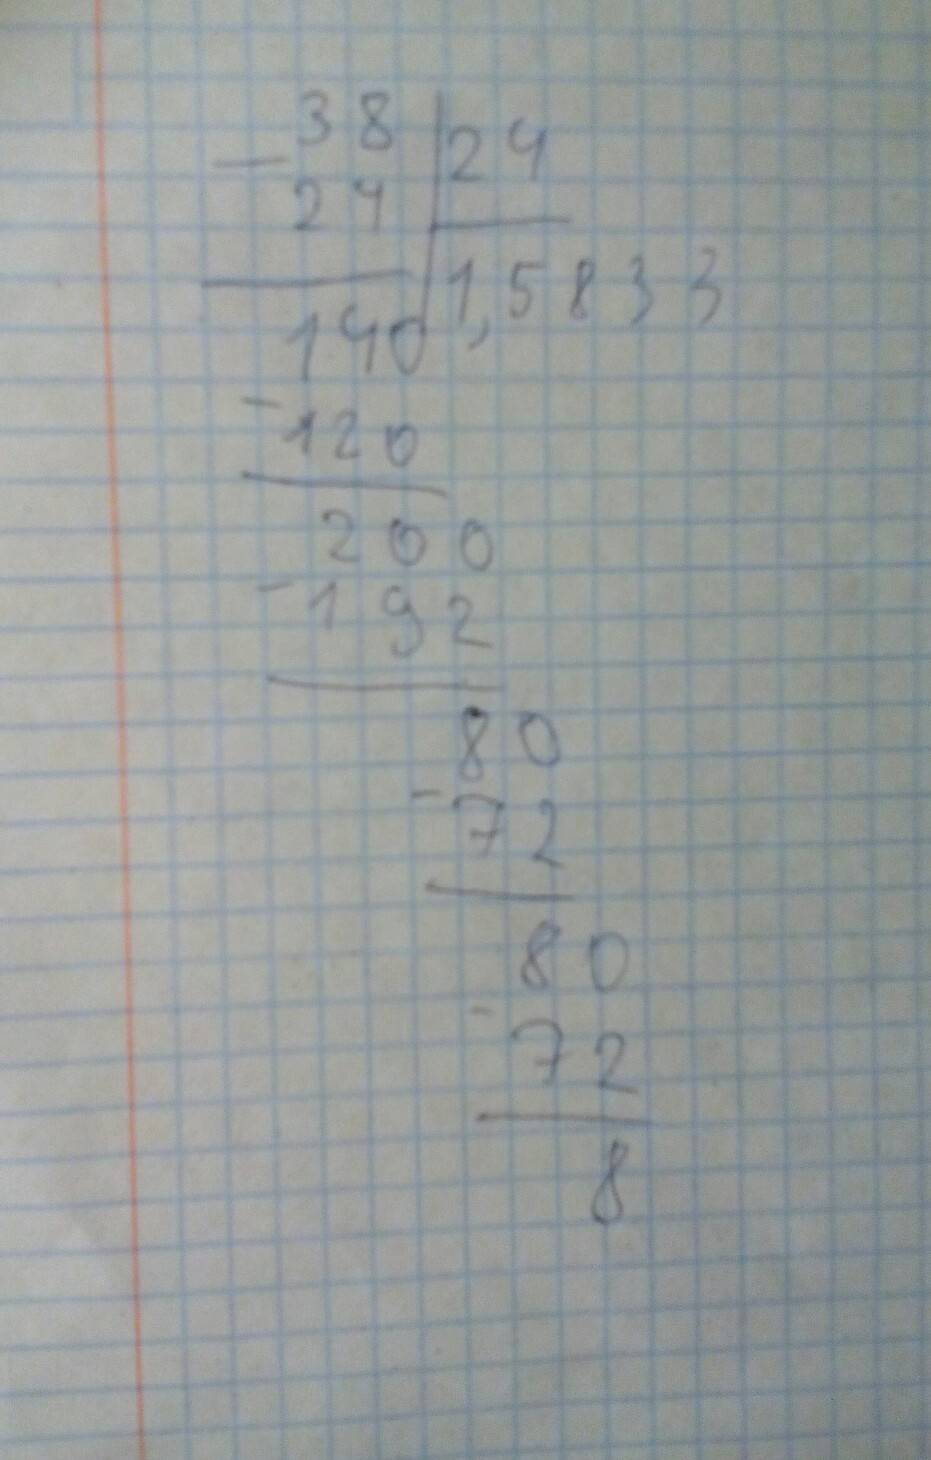 38 24
- 24
1,5833
140
- 120
200
- 192
80
- 72
80
- 72
8